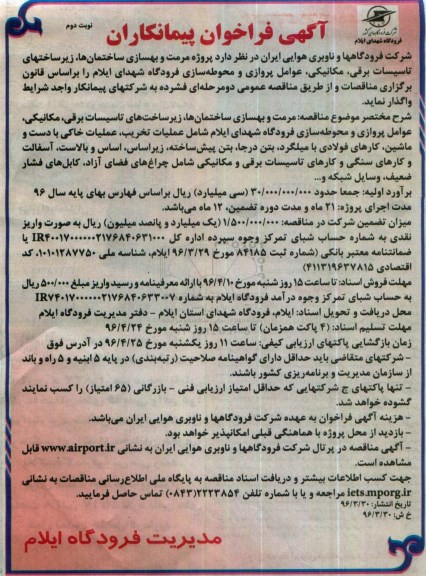 نوبت دوم
آگهی فراخوان پیمانکاران
شرکت فرودگاههای کشور
فرودگاه شهدای ایلام
شرکت فرودگاهها و ناوبری هوایی ایران در نظر دارد پروژه مرمت و بهسازی ساختمان‌ها، زیرساختهای
تاسیسات برقی، مکانیکی، عوامل پروازی و محوطه‌سازی فرودگاه شهدای ایلام را براساس قانون
برگزاری مناقصات و از طریق مناقصه عمومی دومرحله‌ای فشرده به شرکتهای پیمانکار واجد شرایط
واگذار نماید.
شرح مختصر موضوع مناقصه: مرمت و بهسازی ساختمان‌ها، زیرساخت‌های تاسیسات برقی، مکانیکی،
عوامل پروازی و محوطه‌سازی فرودگاه شهدای ایلام شامل عملیات تخریب، عملیات خاکی با دست و
ماشین، کارهای فولادی با میلگرد، بتن درجا، بتن پیش‌ساخته، زیراساس، اساس و بالاست، آسفالت
و کارهای سنگی و کارهای تاسیسات برقی و مکانیکی شامل چراغ‌های فضای آزاد، کابل‌های فشار
ضعیف، وسایل شبکه و...
برآورد اولیه: جمعا حدود ۳۰/۰۰۰/۰۰۰/۰۰۰ (سی میلیارد) ریال براساس فهارس بهای پایه سال ۹۶
مدت اجرای پروژه: ۲۱ ماه و مدت دوره تضمین، ۱۲ ماه می‌باشد.
میزان تضمین شرکت در مناقصه: ۱/۵۰۰/۰۰۰/۰۰۰ (یک میلیارد و پانصد میلیون) ریال به صورت واریز
نقدی به شماره حساب شبای تمرکز وجوه سپرده اداره کل IR۴۰۰۱۷۰۰۰۰۰۰۲۱۷۶۸۴۰۶۳۱۰۰۰ یا
ضمانتنامه معتبر بانکی (شماره ثبت ۸۴۱۸۵ مورخ ۹۶/۳/۲۹ ایلام، شناسه ملی ۱۰۱۰۱۲۸۷۷۵۰، کد
اقتصادی ۴۱۱۳۱۹۶۳۷۸۱۵)
مهلت فروش اسناد: تا ساعت ۱۵ روز شنبه مورخ ۹۶/۴/۱۰ با ارائه معرفینامه و رسید واریز مبلغ ۵۰۰/۰۰۰ ریال
به حساب شبای تمرکز وجوه درآمد فرودگاه ایلام به شماره IR۷۴۰۱۷۰۰۰۰۰۰۲۱۷۶۸۴۰۶۳۳۰۰۷
محل دریافت و تحویل اسناد: ایلام، فرودگاه شهدای استان ایلام - دفتر مدیریت فرودگاه ایلام
مهلت تسلیم اسناد: (۴ پاکت همزمان) تا ساعت ۱۵ روز شنبه مورخ ۹۶/۴/۲۴
زمان بازگشایی پاکتهای ارزیابی کیفی: ساعت ۱۱ روز یکشنبه مورخ ۹۶/۴/۲۵ در آدرس فوق
- شرکتهای متقاضی باید حداقل دارای گواهینامه صلاحیت (رتبه‌بندی) در پایه ۵ ابنیه و ۵ راه و باند
از سازمان مدیریت و برنامه‌ریزی کشور باشند.
- تنها پاکتهای ج شرکتهایی که حداقل امتیاز ارزیابی فنی - بازرگانی (۶۵ امتیاز) را کسب نمایند
گشوده خواهد شد.
- هزینه آگهی فراخوان به عهده شرکت فرودگاهها و ناوبری هوایی ایران می‌باشد.
- بازدید از محل پروژه با هماهنگی قبلی امکانپذیر خواهد بود.
- آگهی مناقصه در پرتال شرکت فرودگاهها و ناوبری هوایی ایران به نشانی www.airport.ir قابل
مشاهده است.
جهت کسب اطلاعات بیشتر و دریافت اسناد مناقصه به پایگاه ملی اطلاع‌رسانی مناقصات به نشانی
iets.mporg.ir مراجعه و یا با شماره تلفن ۲۲۲۳۸۵۴(۰۸۴۳) تماس حاصل فرمایید.
تاریخ انتشار: ۹۶/۳/۳۰
خ ش: ۹۶/۳/۳۰
مدیریت فرودگاه ایلام